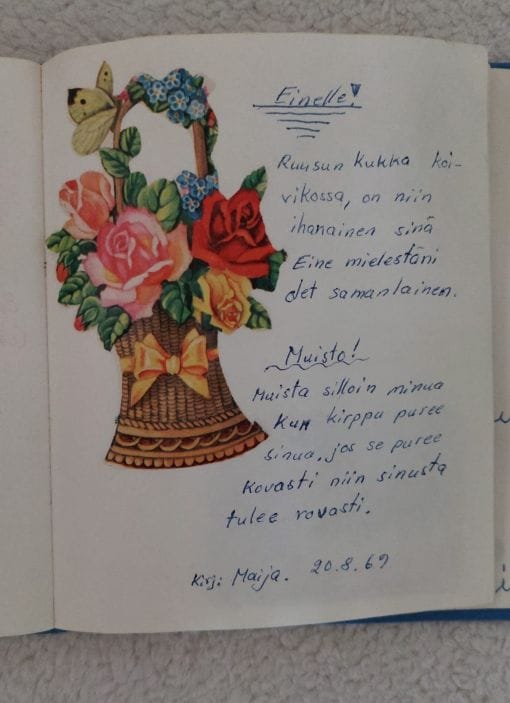 Einelle!
Ruusun kukka koi-
vikossa, on niin
ihanainen sinä
Eine mielestäni
olet samanlainen.
Muista!
Muista silloin minua
kun kirppu puree
sinua, jos se puree
kovasti niin sinusta
tulee rovasti.
Kirj: Maija. 20.8.69